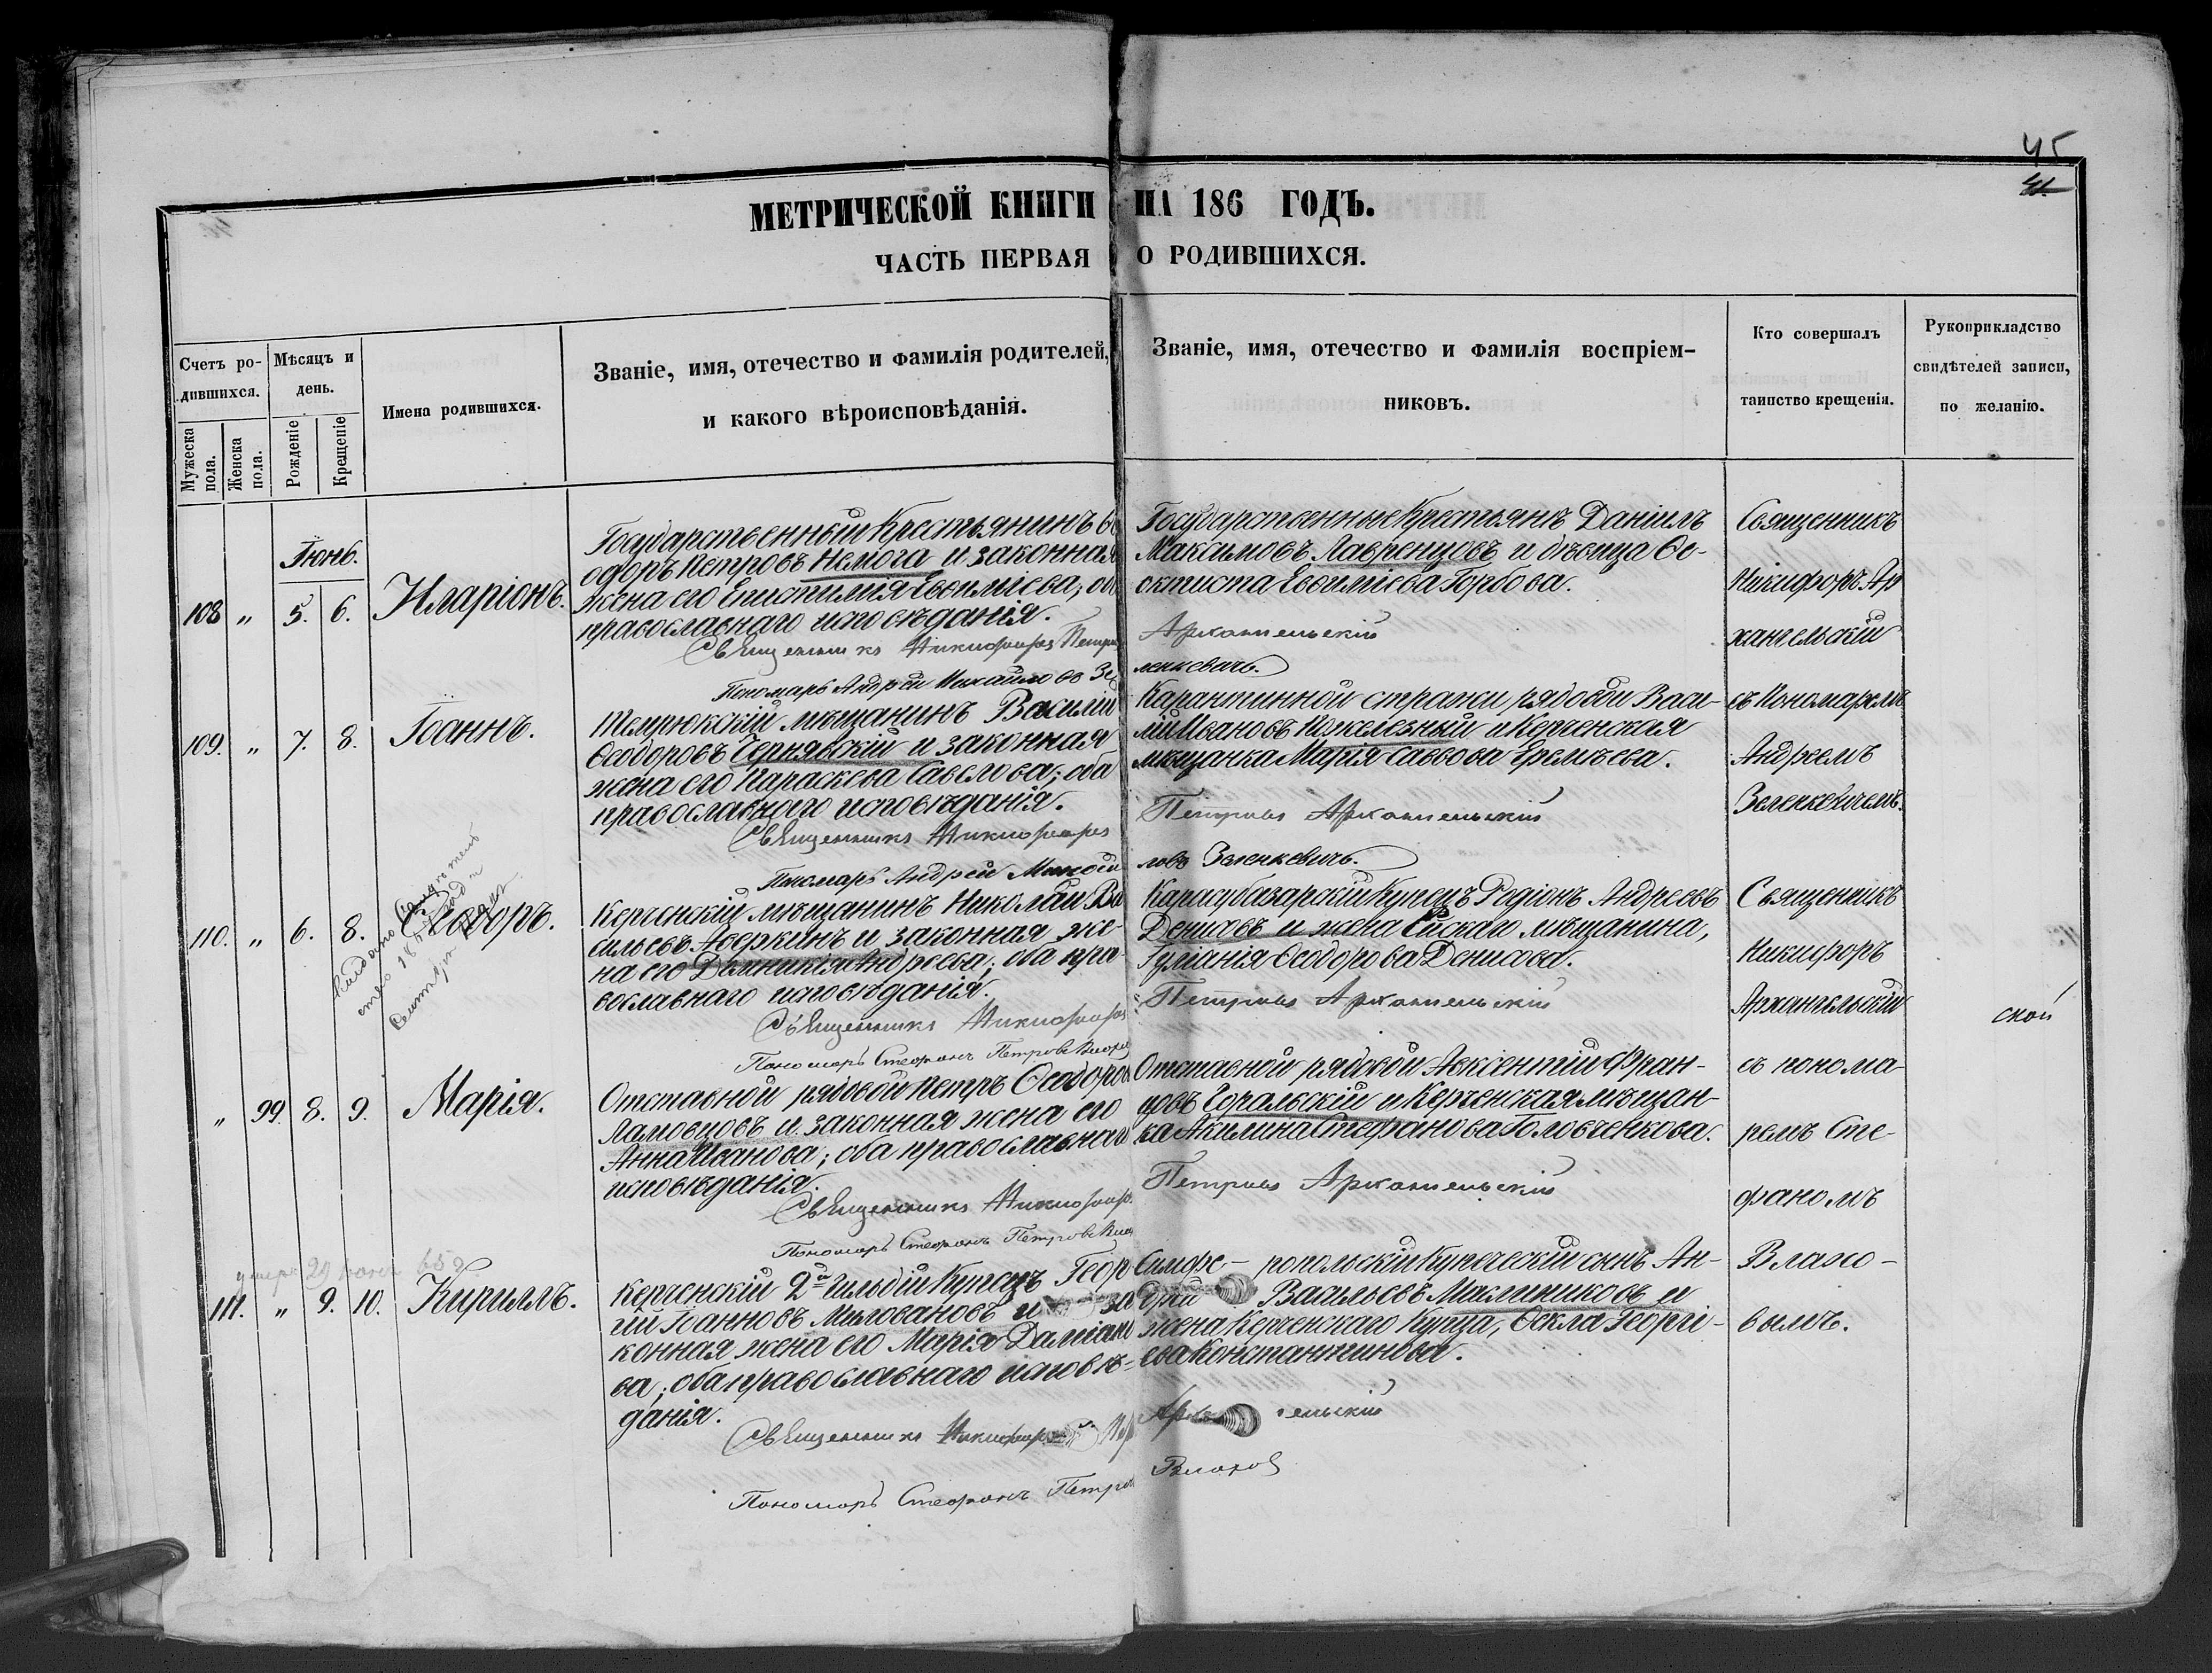 45
41
МЕТРИЧЕСКОЙ КНИГИ НА 186 ГОДЪ.
ЧАСТЬ ПЕРВАЯ О РОДИВШИХСЯ.
Счетъ ро-
дившихся.
Мужеска пола.
Женска пола.
Мѣсяцъ и
день.
Рожденіе
Крещеніе
Имена родившихся.
Званіе, имя, отечество и фамилія родителей,
и какого вѣроисповѣданія.
Званіе, имя, отечество и фамилія воспріем-
никовъ.
Кто совершалъ
таинство крещенія.
Рукоприкладство
свидѣтелей записи,
по желанію.
Іюнь.
108 " 5. 6. Иларіонъ.
Государственный Крестьянинъ Ѳе
одоръ Петровъ Немога и законная
жена его Епистимія Евѳиміева, оба
православнаго исповѣданія.
Священникъ Никифоръ Петровъ
Пономарь Андрей Михайловъ Зе
Государственные Крестьянъ Даніилъ
Максимовъ Лавренцовъ и дѣвица Ѳе-
октиста Евѳиміева Горбова.
Архангельскій
ленкевичъ.
Священникъ
Никифоръ Ар
хангельскій
109. " 7. 8. Іоаннъ.
Темрюкскій мѣщанинъ Василій
Ѳеодоровъ Чернявскій и законная
жена его Параскева Савелова; оба
православнаго исповѣданія.
Священникъ Никифоръ
Пономарь Андрей Михай
Карантинной стражи рядовой Васи-
лій Ивановъ Пожелезный и Керченская
мѣщанка Марія Саввова Еремѣева.
Петровъ Архангельскій
ловъ Зеленкевичъ.
съ Пономаремъ
Андреемъ
Зеленкевичемъ.
110. " 6. 8. Ѳеодоръ.
Выдано свидѣтель
ство
Керченскій мѣщанинъ Николай Ва
сильевъ Аверкинъ и законная же-
на его Домникія Андреева; оба пра-
вославнаго исповѣданія.
Священникъ Никифоръ
Пономарь Стефанъ Петровъ Влахо
Карасубазарскій Купецъ Родіонъ Андреевъ
Денисовъ и жена Ейскаго мѣщанина,
Іуліанія Ѳеодорова Денисова.
Петровъ Архангельскій
Священникъ
Никифоръ
Архангельскій
ской
" 99. 8. 9. Марія.
Отставной рядовой Петръ Ѳеодоровъ
Ламовцовъ и законная жена его
Анна Иванова; оба православнаго
исповѣданія.
Священникъ Никифоръ
Пономарь Стефанъ Петровъ Влах
Отставной рядовой Авксентій Фран-
цовъ Горальскій и Керченская мѣщан-
ка Акилина Стефанова Головченкова.
Петровъ Архангельскій
съ понома-
ремъ Сте-
фаномъ
умеръ 29 65 г.
111. " 9. 10. Кириллъ.
Керченскій 2й гильдіи Купецъ Геор
гій Іоанновъ Миловановъ и за
конная жена его Марія Даміано
ва; оба православнаго исповѣ-
данія.
Священникъ Никифоръ Пет
Пономарь Стефанъ Петровъ
Симфе-ропольскій Купеческій сынъ Ан-
дрей Васильевъ Маслениковъ и
жена Керченскаго Купца, Ѳекла Георгі-
ева Константинова.
Архангельскій
Влаховъ
Влахо-
вымъ.